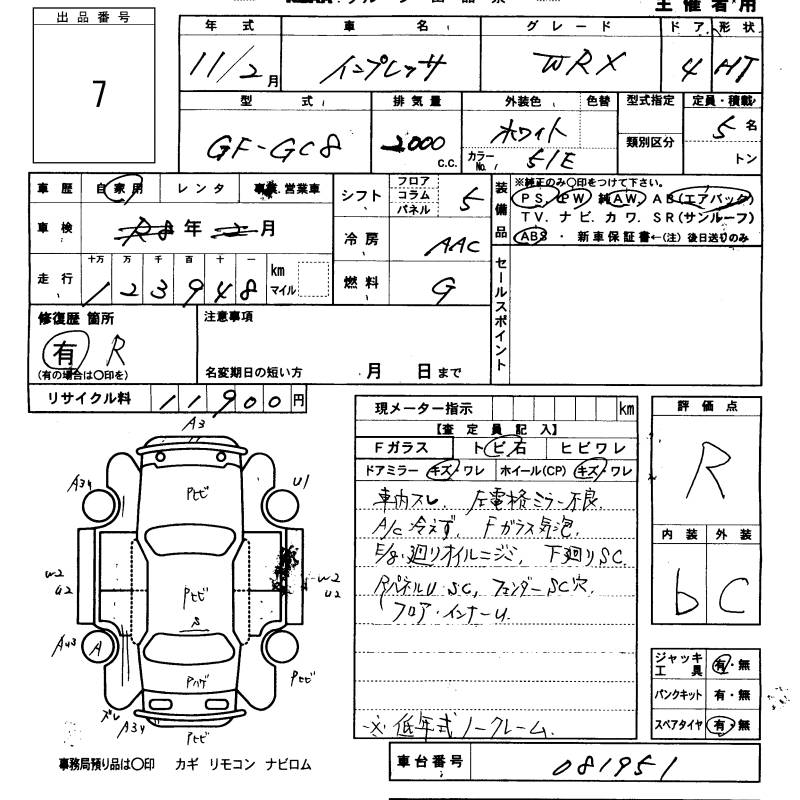 主催者用
出品番号
7
年式 車名 グレード ドア 形状
11/2月 インプレッサ WRX 4 HT
型式 排気量 外装色 色替 型式指定 定員・積載
GF-GC8 2000 c.c. ホワイト 類別区分 5名
カラーNo. 51E トン
車歴 自家用 レンタ 営業車
シフト フロア コラム パネル 5
車検 R8年2月
冷房 AAC
走行 十万 万 千 百 十 一
123948 km マイル
燃料 G
装備品
※純正のみ○印をつけて下さい。
PS PW 純AW. AB(エアバック)
TV. ナビ. カワ. SR(サンルーフ)
ABS ・ 新車保証書←(注) 後日送りのみ
セールスポイント
修復歴 箇所
有 R
(有の場合は○印を)
注意事項
名変期日の短い方 月 日まで
リサイクル料 11900円
現メーター指示 km
【査定員記入】
Fガラス トビ石 ヒビワレ
ドアミラー キズ・ワレ ホイール(CP) キズ・ワレ
車内スレ. 左電格ミラー不良.
A/C冷えず. Fガラス気泡.
E/g.廻りオイルニジミ, 下廻りSC.
RパネルU.SC, フェンダーSC穴.
フロア・インナーU.
※ 低年式ノークレーム.
評価点
R
内装 外装
b C
ジャッキ工具 有・無
パンクキット 有・無
スペアタイヤ 有・無
A3
A34
U1
Pヒビ
W2
U2
W2
U2
Pヒビ
A
AU3
Pヒビ
ズレ
A34
Pヒビ
事務局預り品は○印 カギ リモコン ナビロム
車台番号 081951